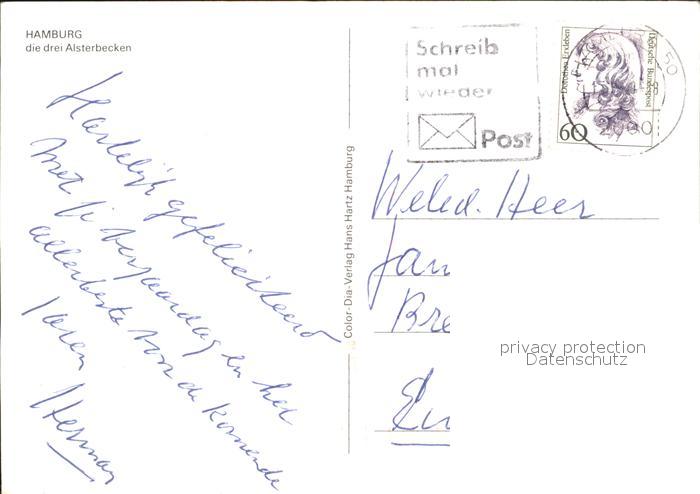 HAMBURG
die drei Alsterbecken
Hartelijk gefeliciteerd
met je verjaardag en het
allerbeste voor de komende
jaren
Herman
Color-Dia-Verlag Hans Hartz Hamburg
Schreib
mal
wieder
Post
Dorothea Erxleben
Deutsche Bundespost
60
50
Weled. Heer
Jan
Bre
En
privacy protection
Datenschutz